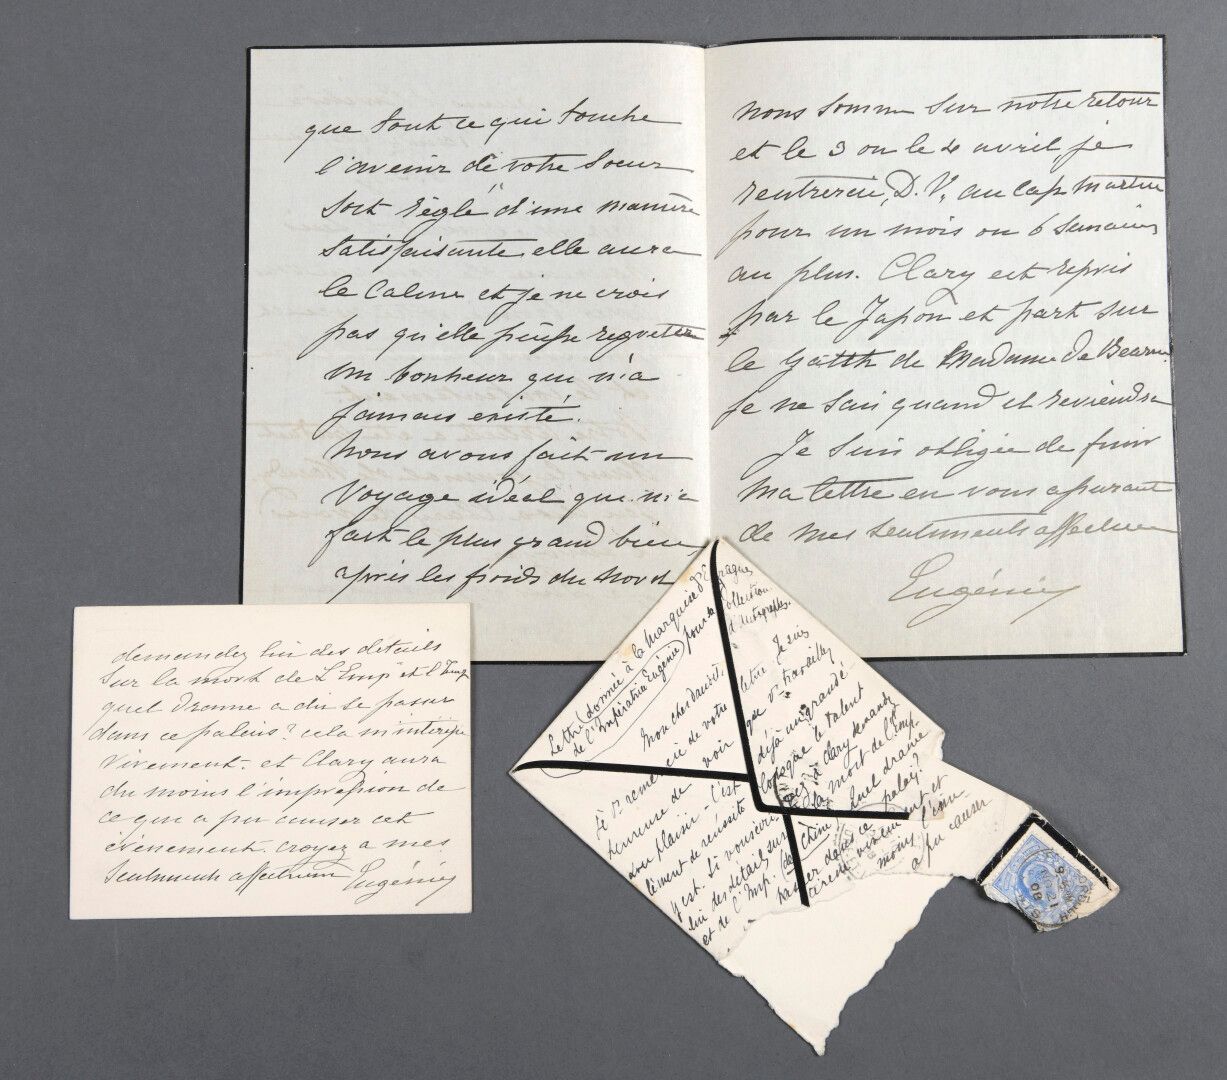 que tout ce qui touche
l'avenir de votre soeur
soit réglé d'une manière
satisfaisante elle aura
le calme et je ne crois
pas qu'elle puisse regretter
un bonheur que n'a
jamais existé.
Nous avons fait un
voyage idéal que m'a
fait le plus grand bien
après les froids du Nord
nous sommes sur notre retour
et le 3 ou le 4 avril je
rentrerai, D. V. au Cap Martin
pour un mois ou 6 semaines
au plus. Clary est repris
par le Japon et part sur
le yatth de Madame de Béarn.
je ne sais quand il reviendra
Je suis obligée de finir
ma lettre en vous assurant
de mes sentiments affectueux
Eugénie
demandez lui des détails
sur la mort de L'Emp et l'Imp
quel drame a dû se passer
dans ce palais? cela m'intéresse
vivement. et Clary aura
du moins l'impression de
ce que a pu causer cet
évènement. croyez a mes
sentiments affectueux Eugénie
Lettre (donnée à la Marquise d'Espagne
de l'Impératrice Eugénie) pour sa collection
d'autographes.
Mon cher
Je vs remercie de votre lettre. Je suis
heureuse de voir que vs travaillez
con plaisir. C'est déjà un grand é
lément de réussite lorsque le talent
y est. Si vous à Clary demandez
lui des détails sur la mort de l'Emp.
et de l'Imp. (de Chine) Quel drame
passer dans ce palais?
vivement et
moins l'im
a pu causer